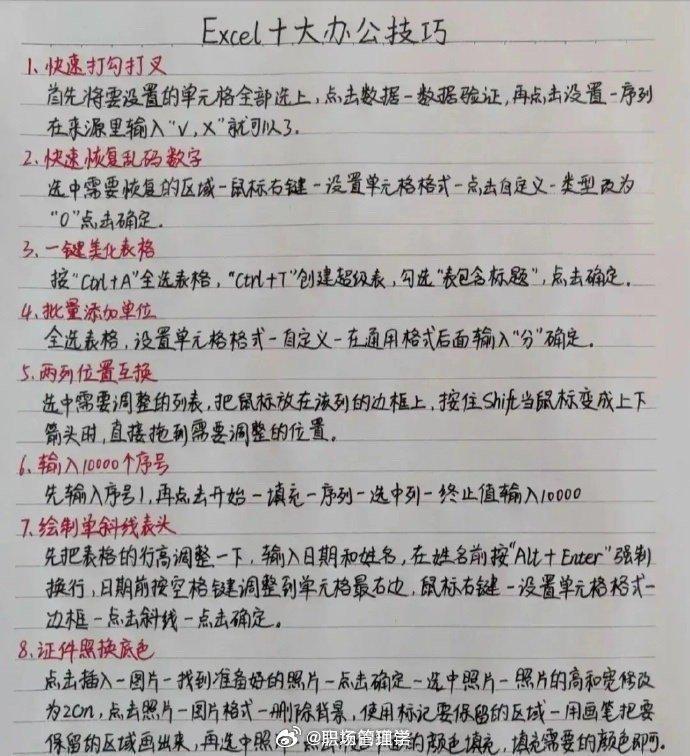 Excel十大办公技巧
1、快速打勾打叉
首先将要设置的单元格全部选上，点击数据-数据验证，再点击设置-序列
在来源里输入"V，X"就可以了.
2、快速恢复乱码数字
选中需要恢复的区域-鼠标右键-设置单元格格式-点击自定义-类型改为
"0"点击确定.
3、一键美化表格
按"Ctrl+A"全选表格，"Ctrl+T"创建超级表，勾选"表包含标题"，点击确定.
4、批量添加单位
全选表格，设置单元格格式-自定义-在通用格式后面输入"分"确定.
5、两列位置互换
选中需要调整的列表，把鼠标放在该列的边框上，按住Shift当鼠标变成上下
箭头时，直接拖到需要调整的位置.
6、输入10000个序号
先输入序号1，再点击开始-填充-序列-选中列-终止值输入10000
7、绘制单斜线表头
先把表格的行高调整一下，输入日期和姓名，在姓名前按"Alt+Enter"强制
换行，日期前按空格键调整到单元格最右边，鼠标右键-设置单元格格式-
边框-点击斜线-点击确定.
8、证件照换底色
点击插入-图片-找到准备好的照片-点击确定-选中照片-照片的高和宽修改
为2cm，点击照片-图片格式-删除背景，使用标记要保留的区域-用画笔把要
保留的区域画出来，再选中照的颜色填充，填充需要的颜色即可.
@职场管理学